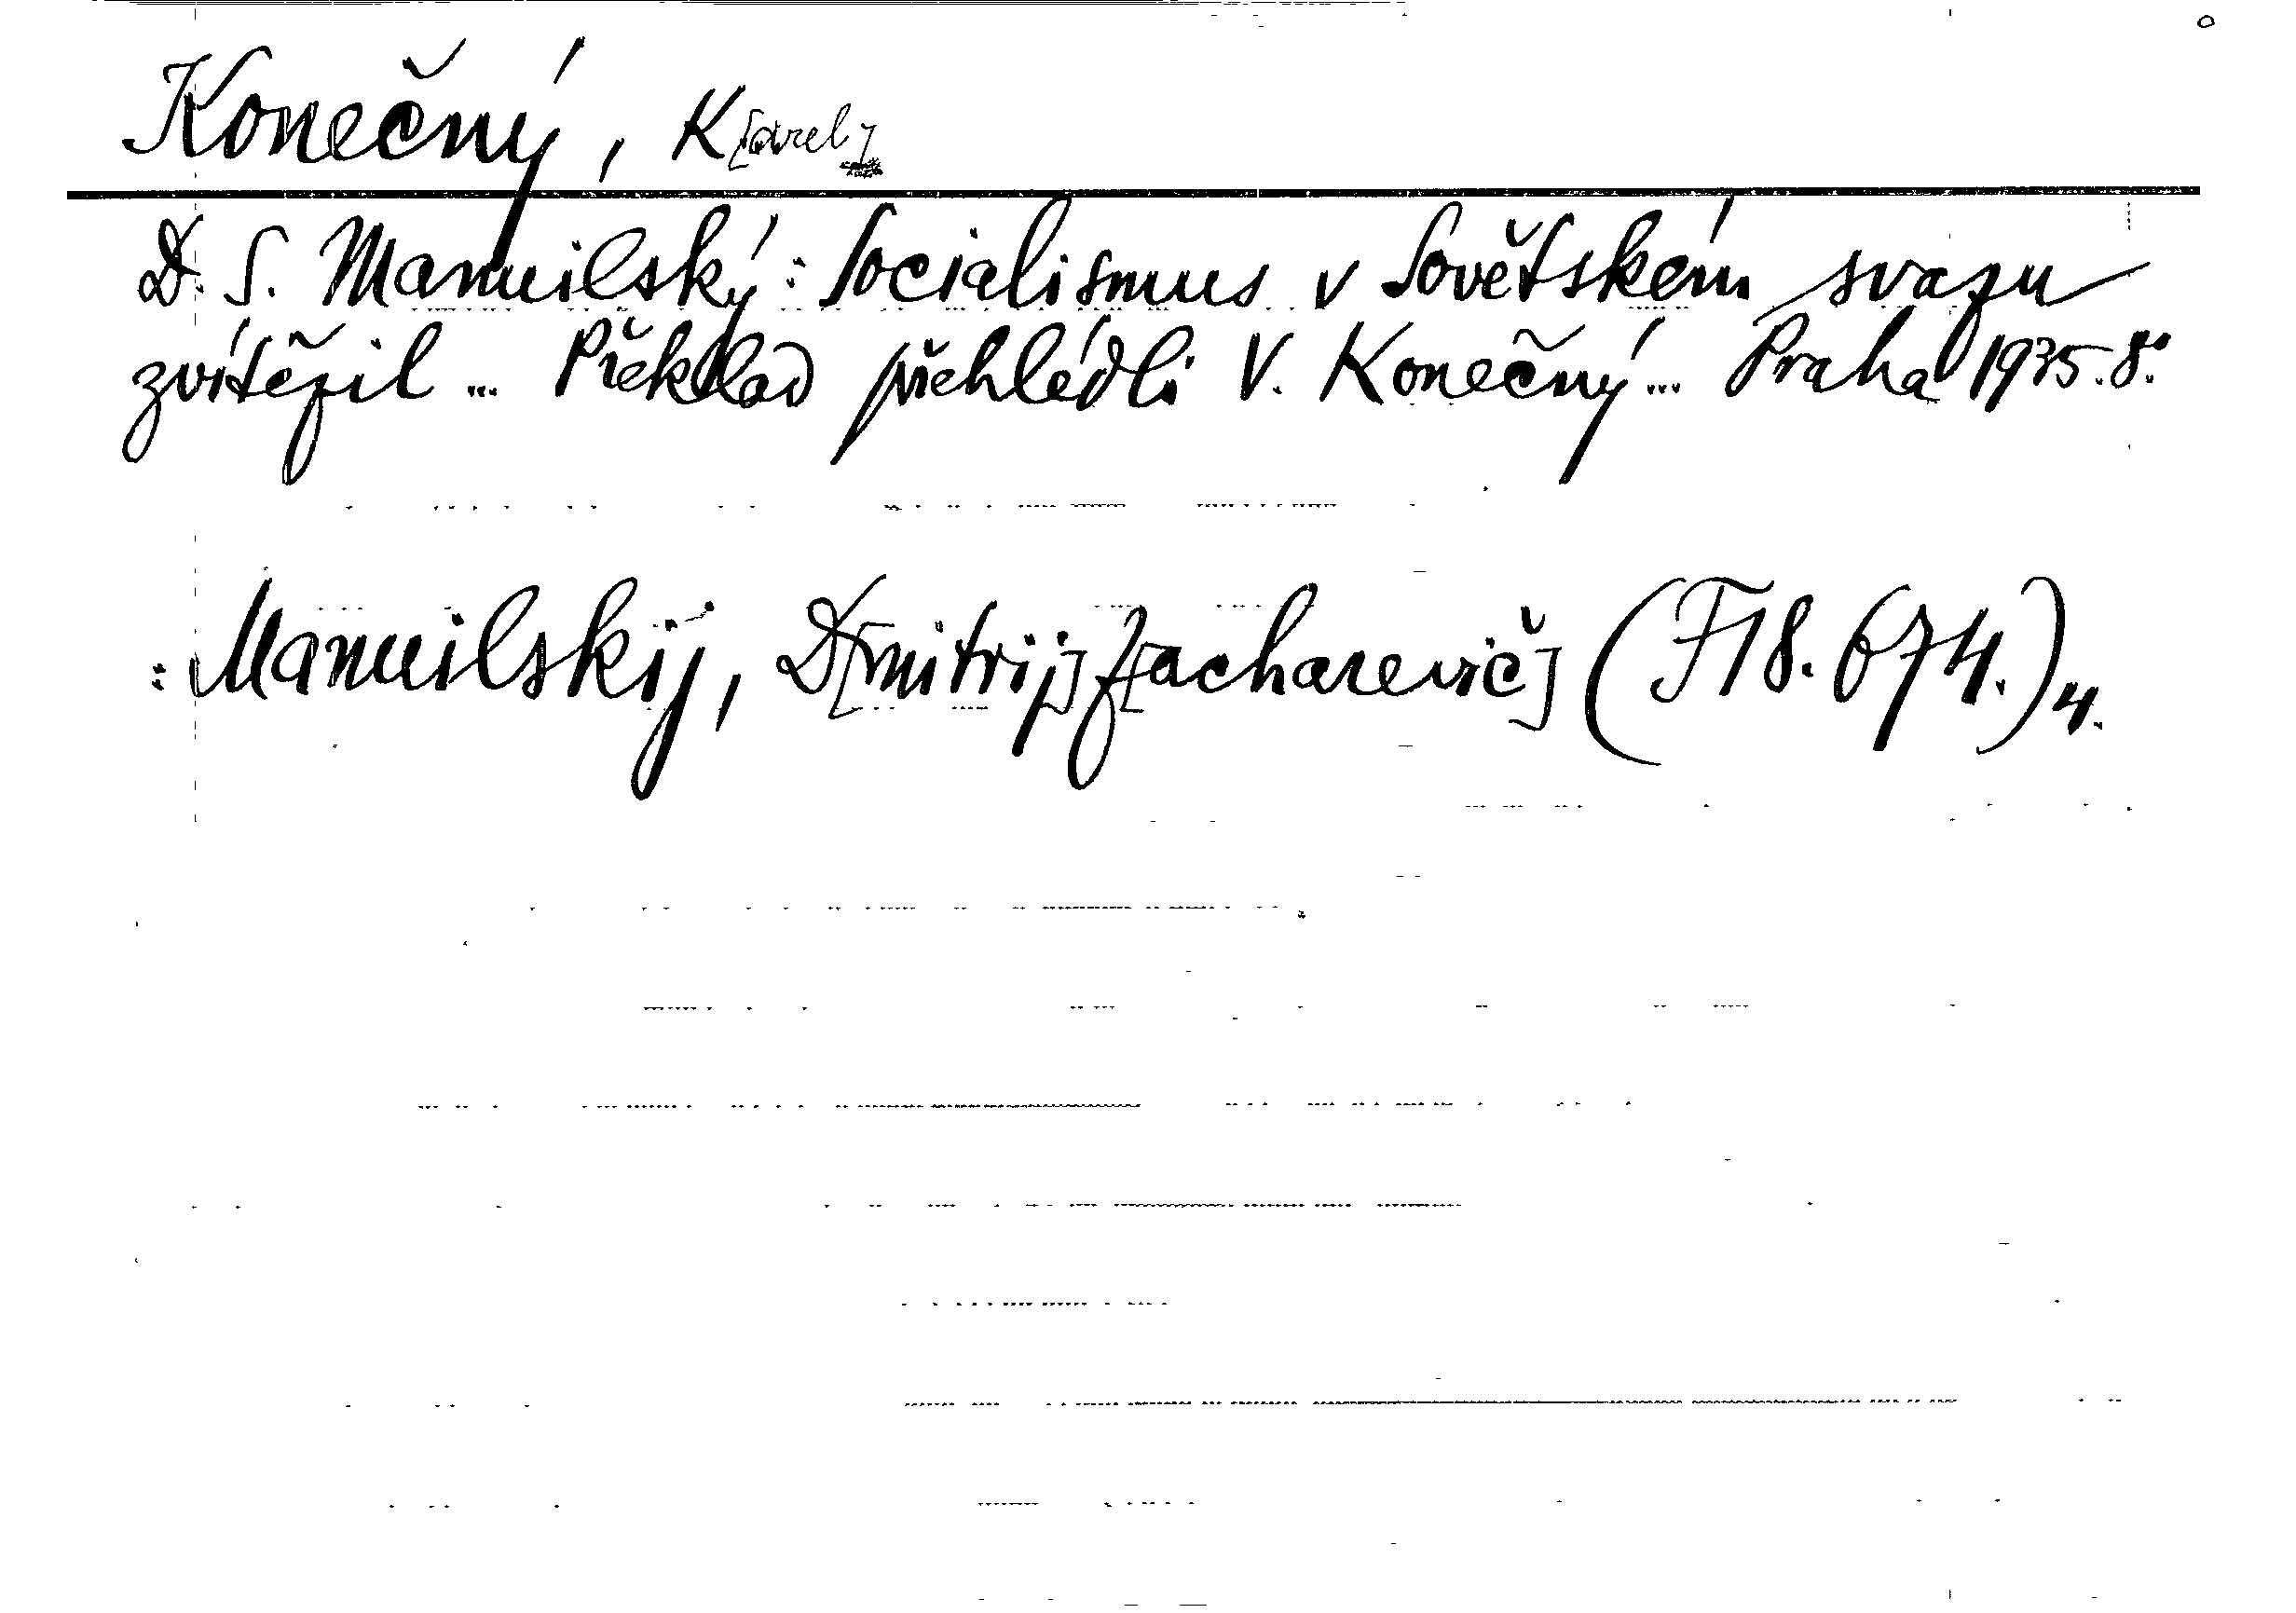 Konečný, K[arel]
D. S. Manuilský: Socialismus v Sovětském svazu
zvítězil ... Překlad přehlédli V. Konečný ... Praha 1935. 8°.
: Manuilskij, D[mitrij] Z[acharevič] (F 18. 674.) 4.